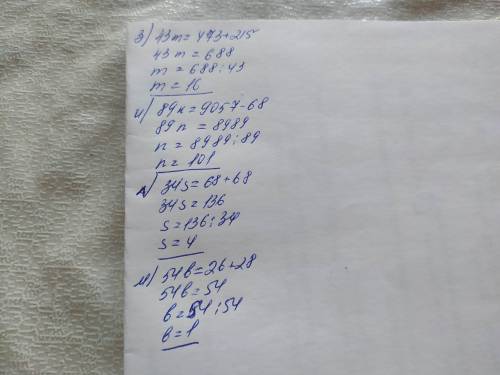 з) 43m=473+215
43m=688
m=688:43
m=16
и) 89n=9057-68
89n=8989
n=8989:89
n=101
л) 34s=68+68
34s=136
s=136:34
s=4
м) 54b=26+28
54b=54
b=54:54
b=1